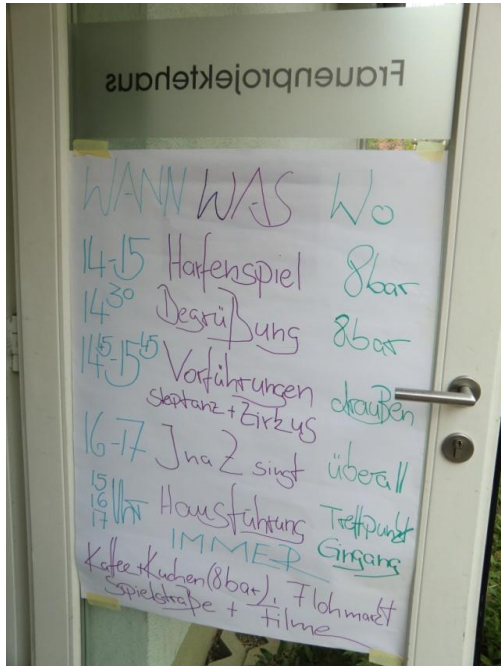 Frauenprojektehaus
WANN WAS Wo
14-15 Harfenspiel 8bar
14³⁰ Begrüßung 8bar
14⁴⁵-15⁴⁵ Vorführungen draußen
Steptanz + Zirkus
16-17 JnaZ singt überall
15 16 17 Uhr Hausführung Treffpunkt Eingang
IMMER
Kaffee + Kuchen (8bar), Flohmarkt
Spielstraße + Filme